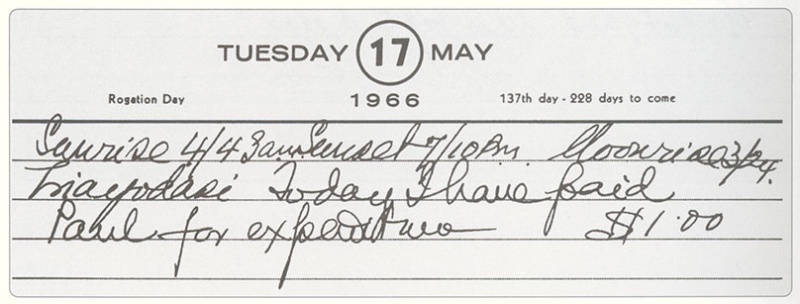 TUESDAY 17 MAY
Rogation Day 1966 137th day - 228 days to come
Sunrise 4/43am Sunset 7/10pm. Moonrise 3/24.
Triayodasi Today I have paid
Paul for expenditure $1.00